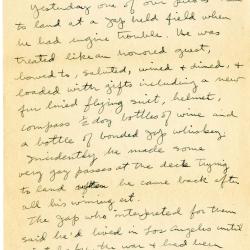 Yesterday one of our
to land at a Jap held field when
he had engine trouble. He was
treated like an honored guest,
bowed to, saluted, wined & dined, &
loaded with gifts including a new
fur lined flying suit, helmet,
compass ½ doz bottles of wine and
a bottle of bonded Jap whiskey.
Incidently, he made some
very gay passes at the deck trying
to land when he came back after
all his wining out.
The Jap who interpreted for them
said he'd lived in Los Angeles until
the war & had been